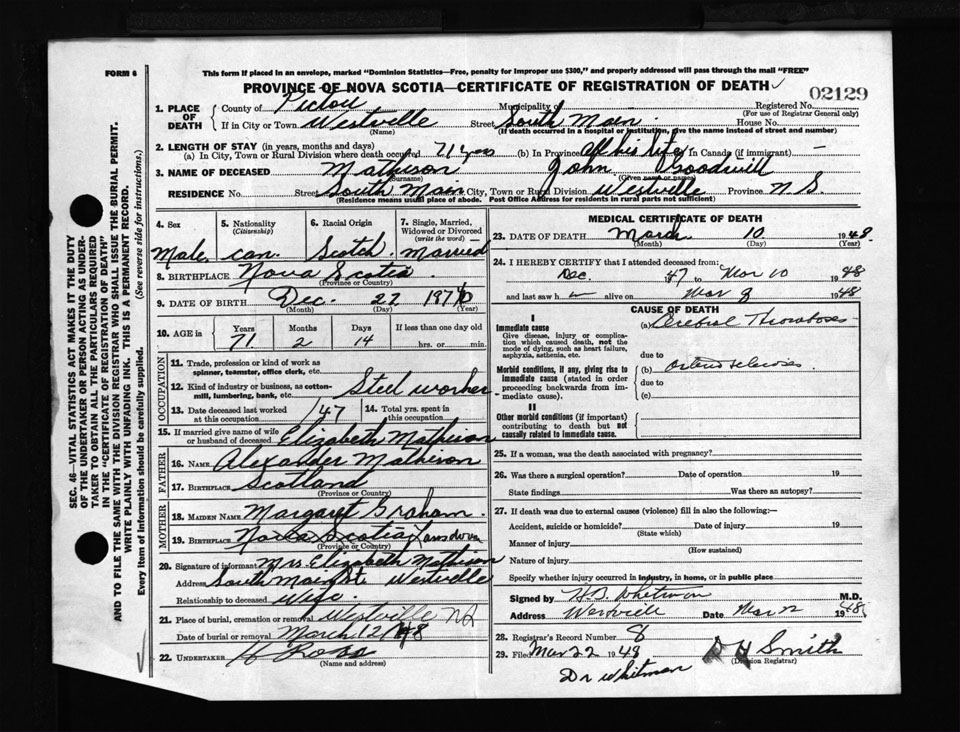 FORM 6
This form if placed in an envelope, marked "Dominion Statistics—Free, penalty for improper use $300," and properly addressed will pass through the mail "FREE"
PROVINCE OF NOVA SCOTIA—CERTIFICATE OF REGISTRATION OF DEATH
02129
1. PLACE OF DEATH County of Pictou Municipality of Registered No.
(For use of Registrar General only)
If in City or Town Westville Street South Main House No.
(Name) (If death occurred in a hospital or institution, give the name instead of street and number)
2. LENGTH OF STAY (in years, months and days)
(a) In City, Town or Rural Division where death occurred 71 yrs (b) In Province All his life In Canada (if immigrant) —
3. NAME OF DECEASED Mathison John Goodwill
(Surname) (Given name or names)
RESIDENCE No. Street South Main City, Town or Rural Division Westville Province N S.
(Residence means usual place of abode. Post Office Address for residents in rural parts not sufficient)
4. Sex 5. Nationality (Citizenship) 6. Racial Origin 7. Single, Married, Widowed or Divorced (write the word)
Male can. Scotch Married
8. BIRTHPLACE Nova Scotia
(Province or Country)
9. DATE OF BIRTH Dec. 22 1876
(Month) (Day) (Year)
10. AGE in Years Months Days If less than one day old
71 2 14 hrs. or min.
OCCUPATION
11. Trade, profession or kind of work as spinner, teamster, office clerk, etc.
12. Kind of industry or business, as cotton-mill, lumbering, bank, etc. Steel worker
13. Date deceased last worked at this occupation 47 14. Total yrs. spent in this occupation
15. If married give name of wife or husband of deceased Elizabeth Mathison
FATHER
16. NAME Alexander Mathison
17. BIRTHPLACE Scotland
(Province or Country)
MOTHER
18. MAIDEN NAME Margaret Graham
19. BIRTHPLACE Nova Scotia Lansdown
(Province or Country)
20. Signature of informant Mrs. Elizabeth Mathison
Address South Main St Westville
Relationship to deceased Wife
21. Place of burial, cremation or removal Westville NS
Date of burial or removal March 12/48
22. UNDERTAKER H Ross
(Name and address)
MEDICAL CERTIFICATE OF DEATH
23. DATE OF DEATH March 10 1948
(Month) (Day) (Year)
24. I HEREBY CERTIFY that I attended deceased from:
Dec. 47 to Mar 10 1948
and last saw h alive on Mar 9 1948
CAUSE OF DEATH
I
Immediate cause (a) Cerebral Thrombosis
Give disease, injury or complication which caused death, not the mode of dying, such as heart failure, asphyxia, asthenia, etc.
due to
Morbid conditions, if any, giving rise to immediate cause (stated in order proceeding backwards from immediate cause). (b)
due to
(c)
II
Other morbid conditions (if important) contributing to death but not causally related to immediate cause.
25. If a woman, was the death associated with pregnancy?
26. Was there a surgical operation? Date of operation 19
State findings Was there an autopsy?
27. If death was due to external causes (violence) fill in also the following:—
Accident, suicide or homicide? Date of injury 19
(State which)
Manner of injury
(How sustained)
Nature of injury
Specify whether injury occurred in industry, in home, or in public place
Signed by Whitman M.D.
Address Westville Date Mar 1948
28. Registrar's Record Number 8
29. Filed Mar 22 1948 D H Smith
(Division Registrar)
Dr Whitman
SEC. 46—VITAL STATISTICS ACT MAKES IT THE DUTY
OF THE UNDERTAKER OR PERSON ACTING AS UNDER-
TAKER TO OBTAIN ALL THE PARTICULARS REQUIRED
IN THE "CERTIFICATE OF REGISTRATION OF DEATH"
AND TO FILE THE SAME WITH THE DIVISION REGISTRAR WHO SHALL ISSUE THE BURIAL PERMIT.
WRITE PLAINLY WITH UNFADING INK. THIS IS A PERMANENT RECORD.
Every item of information should be carefully supplied. (See reverse side for instructions.)